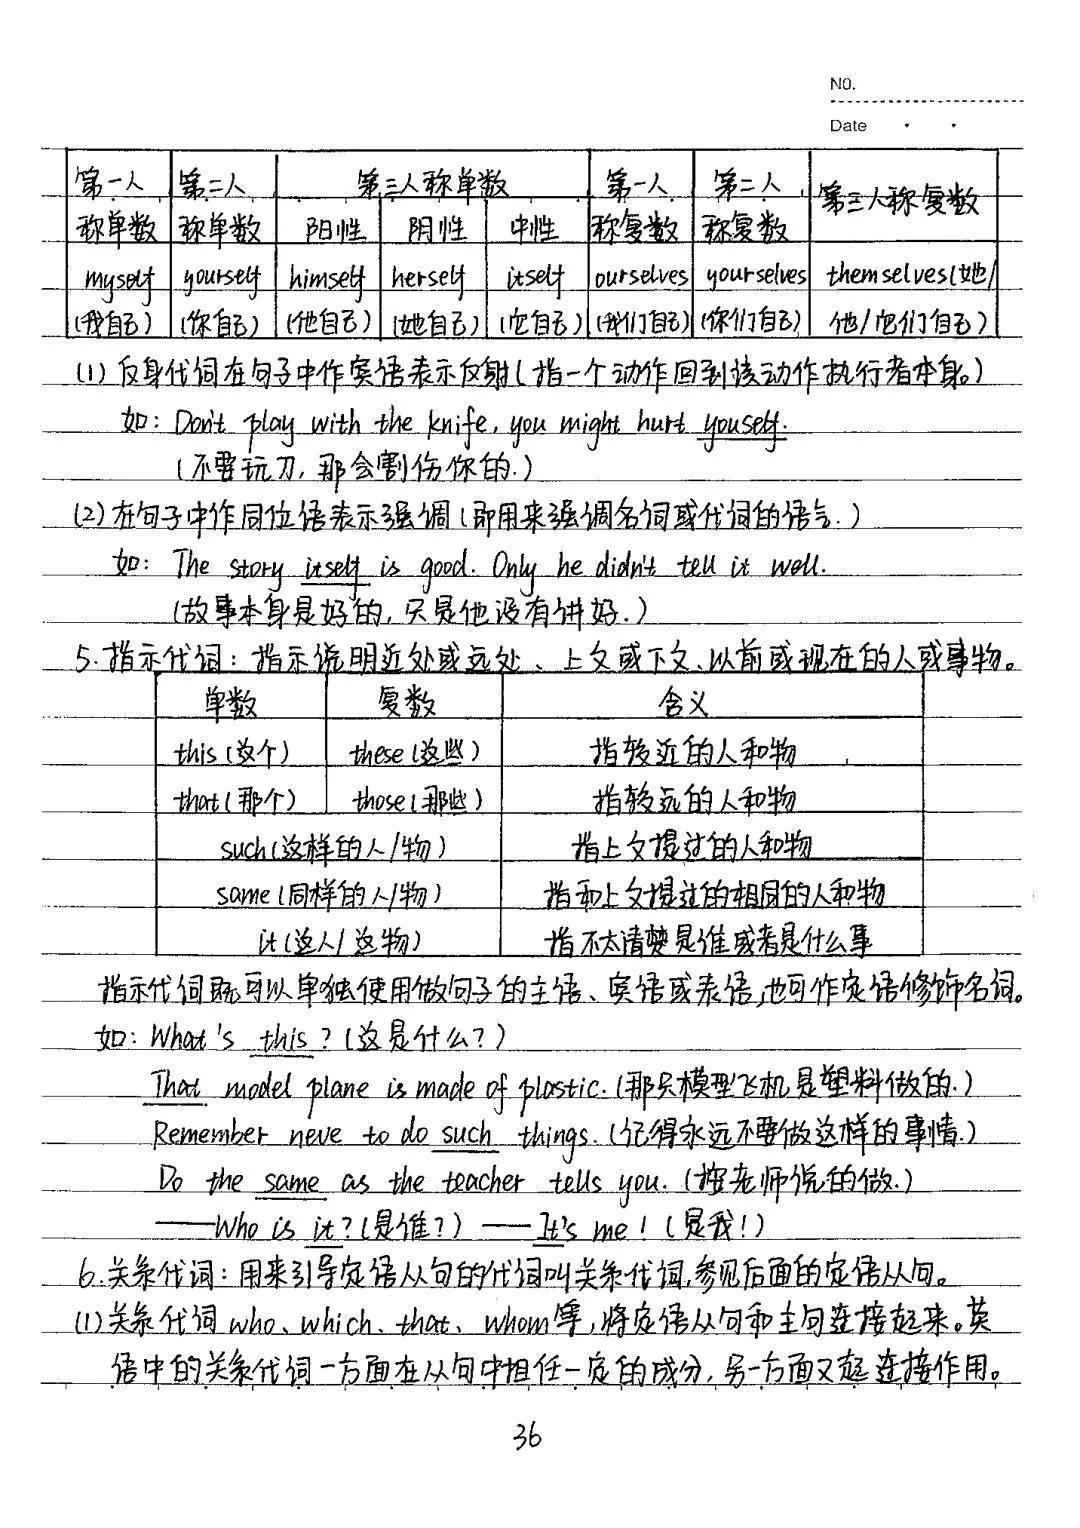 NO.
Date
第一人 第二人 第三人称单数 第一人 第二人 第三人称复数
称单数 称单数 阳性 阴性 中性 称复数 称复数
myself yourself himself herself itself ourselves yourselves themselves(她/
(我自己) (你自己) (他自己) (她自己) (它自己) (我们自己) (你们自己) 他/它们自己)
(1) 反身代词在句子中作宾语表示反射(指一个动作回到该动作执行者本身。)
如: Don't play with the knife, you might hurt youself.
(不要玩刀, 那会割伤你的.)
(2) 在句子中作同位语表示强调(即用来强调名词或代词的语气.)
如: The story itself is good. Only he didn't tell it well.
(故事本身是好的, 只是他没有讲好.)
5. 指示代词: 指示说明近处或远处、上文或下文、以前或现在的人或事物。
单数 复数 含义
this(这个) these(这些) 指较近的人和物
that(那个) those(那些) 指较远的人和物
such(这样的人/物) 指上文提过的人和物
same(同样的人/物) 指和上文提过的相同的人和物
it(这人/这物) 指不太清楚是谁或者是什么事
指示代词既可以单独使用做句子的主语、宾语或表语,也可作定语修饰名词。
如: What's this? (这是什么?)
That model plane is made of plastic. (那只模型飞机是塑料做的.)
Remember neve to do such things. (记得永远不要做这样的事情.)
Do the same as the teacher tells you. (按老师说的做.)
——Who is it? (是谁?) ——It's me! (是我!)
6. 关系代词: 用来引导定语从句的代词叫关系代词,参见后面的定语从句。
(1) 关系代词 who、which、that、whom等, 将定语从句和主句连接起来。英
语中的关系代词一方面在从句中担任一定的成分, 另一方面又起连接作用。
36